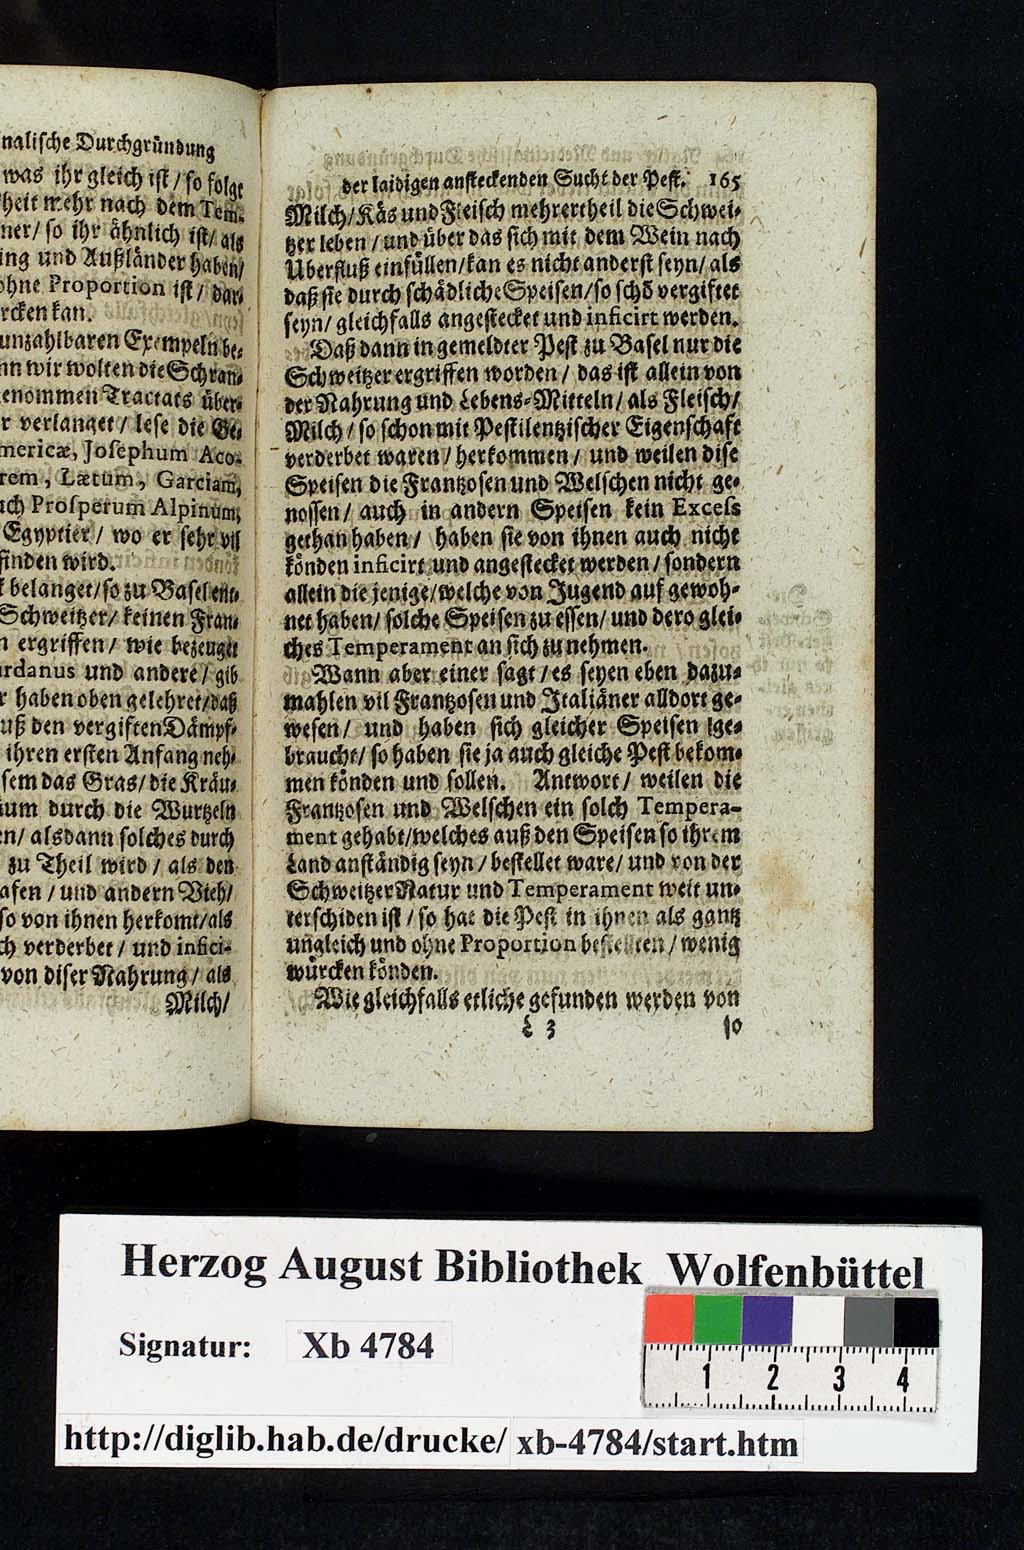 nalische Durchgründung
was ihr gleich ist / so folgt
heit mehr nach dem Tem-
ner / so ihr ähnlich ist / als
ing und Außländer haben /
ohne Proportion ist / dar-
rcken kan.
unzahlbaren Exempeln be-
nn wir wolten die Schran-
enommen Tractats über-
r verlanget / lese die Ge-
mericæ, Josephum Aco-
rem, Lætum, Garciam,
uch Prosperum Alpinum,
Egyptier / wo er sehr vil
finden wird.
t belanget / so zu Basel ent-
Schweitzer / keinen Fran-
n ergriffen / wie bezeuget
rdanus und andere / gib
r haben oben gelehret / daß
uß den vergiften Dämpf-
ihren ersten Anfang neh-
sem das Gras / die Kräu-
ium durch die Wurtzeln
en / alsdann solches durch
zu Theil wird / als den
afen / und andern Vieh /
so von ihnen herkomt / als
ch verderbet / und infici-
von diser Nahrung / als
Milch /
der laidigen ansteckenden Sucht der Pest. 165
Milch / Käs und Fleisch mehrertheil die Schwei-
tzer leben / und über das sich mit dem Wein nach
Überfluß einfüllen / kan es nicht anderst seyn / als
daß sie durch schädliche Speisen / so schō vergiftet
seyn / gleichfalls angestecket und inficirt werden.
Daß dann in gemeldter Pest zu Basel nur die
Schweitzer ergriffen worden / das ist allein von
der Nahrung und Lebens-Mitteln / als Fleisch /
Milch / so schon mit Pestilentzischer Eigenschaft
verderbet waren / herkommen / und weilen dise
Speisen die Frantzosen und Welschen nicht ge-
nossen / auch in andern Speisen kein Excess
gethan haben / haben sie von ihnen auch nicht
könden inficirt und angestecket werden / sondern
allein die jenige / welche von Jugend auf gewoh-
net haben / solche Speisen zu essen / und dero glei-
ches Temperament an sich zu nehmen.
Wann aber einer sagt / es seyen eben dazu-
mahlen vil Frantzosen und Italiäner alldort ge-
wesen / und haben sich gleicher Speisen ge-
braucht / so haben sie ja auch gleiche Pest bekom-
men könden und sollen. Antwort / weilen die
Frantzosen und Welschen ein solch Tempera-
ment gehabt / welches auß den Speisen so ihrem
Land anständig seyn / bestellet ware / und von der
Schweitzer Natur und Temperament weit un-
terschiden ist / so hat die Pest in ihnen als gantz
ungleich und ohne Proportion bestellten / wenig
würcken könden.
Wie gleichfalls etliche gefunden werden von
L 3 so
Herzog August Bibliothek Wolfenbüttel
Signatur: Xb 4784
1 2 3 4
http://diglib.hab.de/drucke/ xb-4784/start.htm